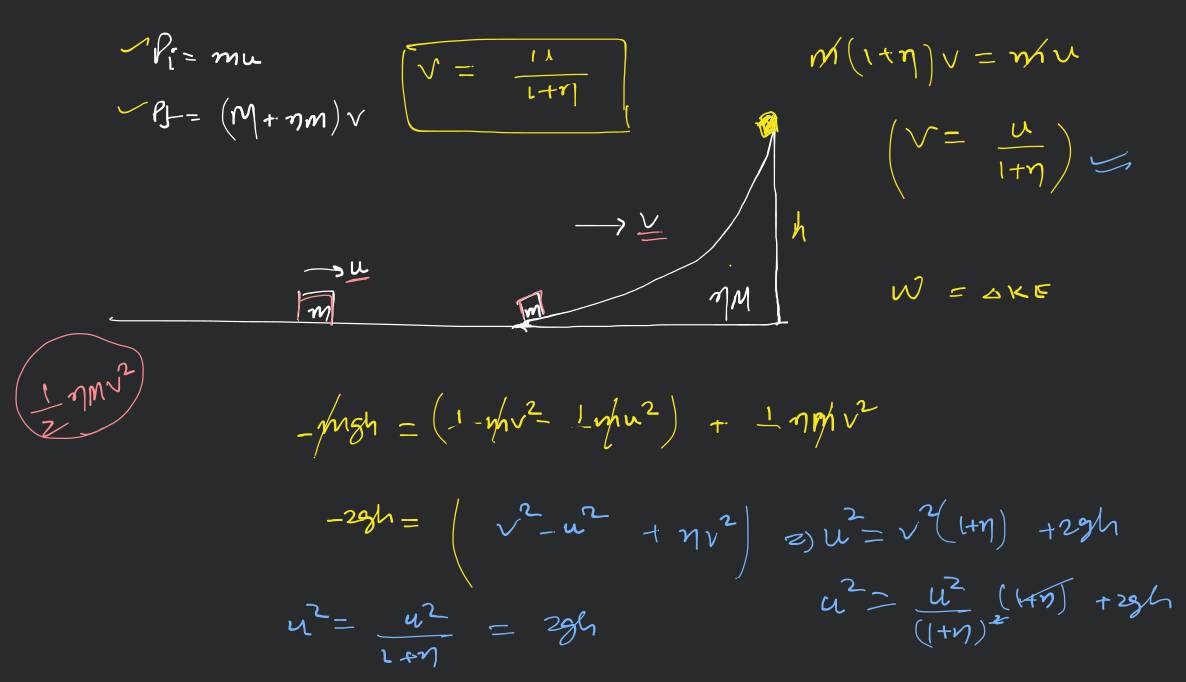 Pi = mu
V = u/(1+η)
m(1+η)v = mu
Pf = (M + ηm)v
(V = u/(1+η))
→ v
h
→ u
m
m
ηM
W = ΔKE
1/2 ηmv²
-mgh = (1 mv² - 1 mu²) + 1 ηmv²
-2gh = (v² - u² + ηv²) ⇒ u² = v²(1+η) + 2gh
u² = u²/(1+η)² (1+η) + 2gh
u² = u²/(1+η) = 2gh